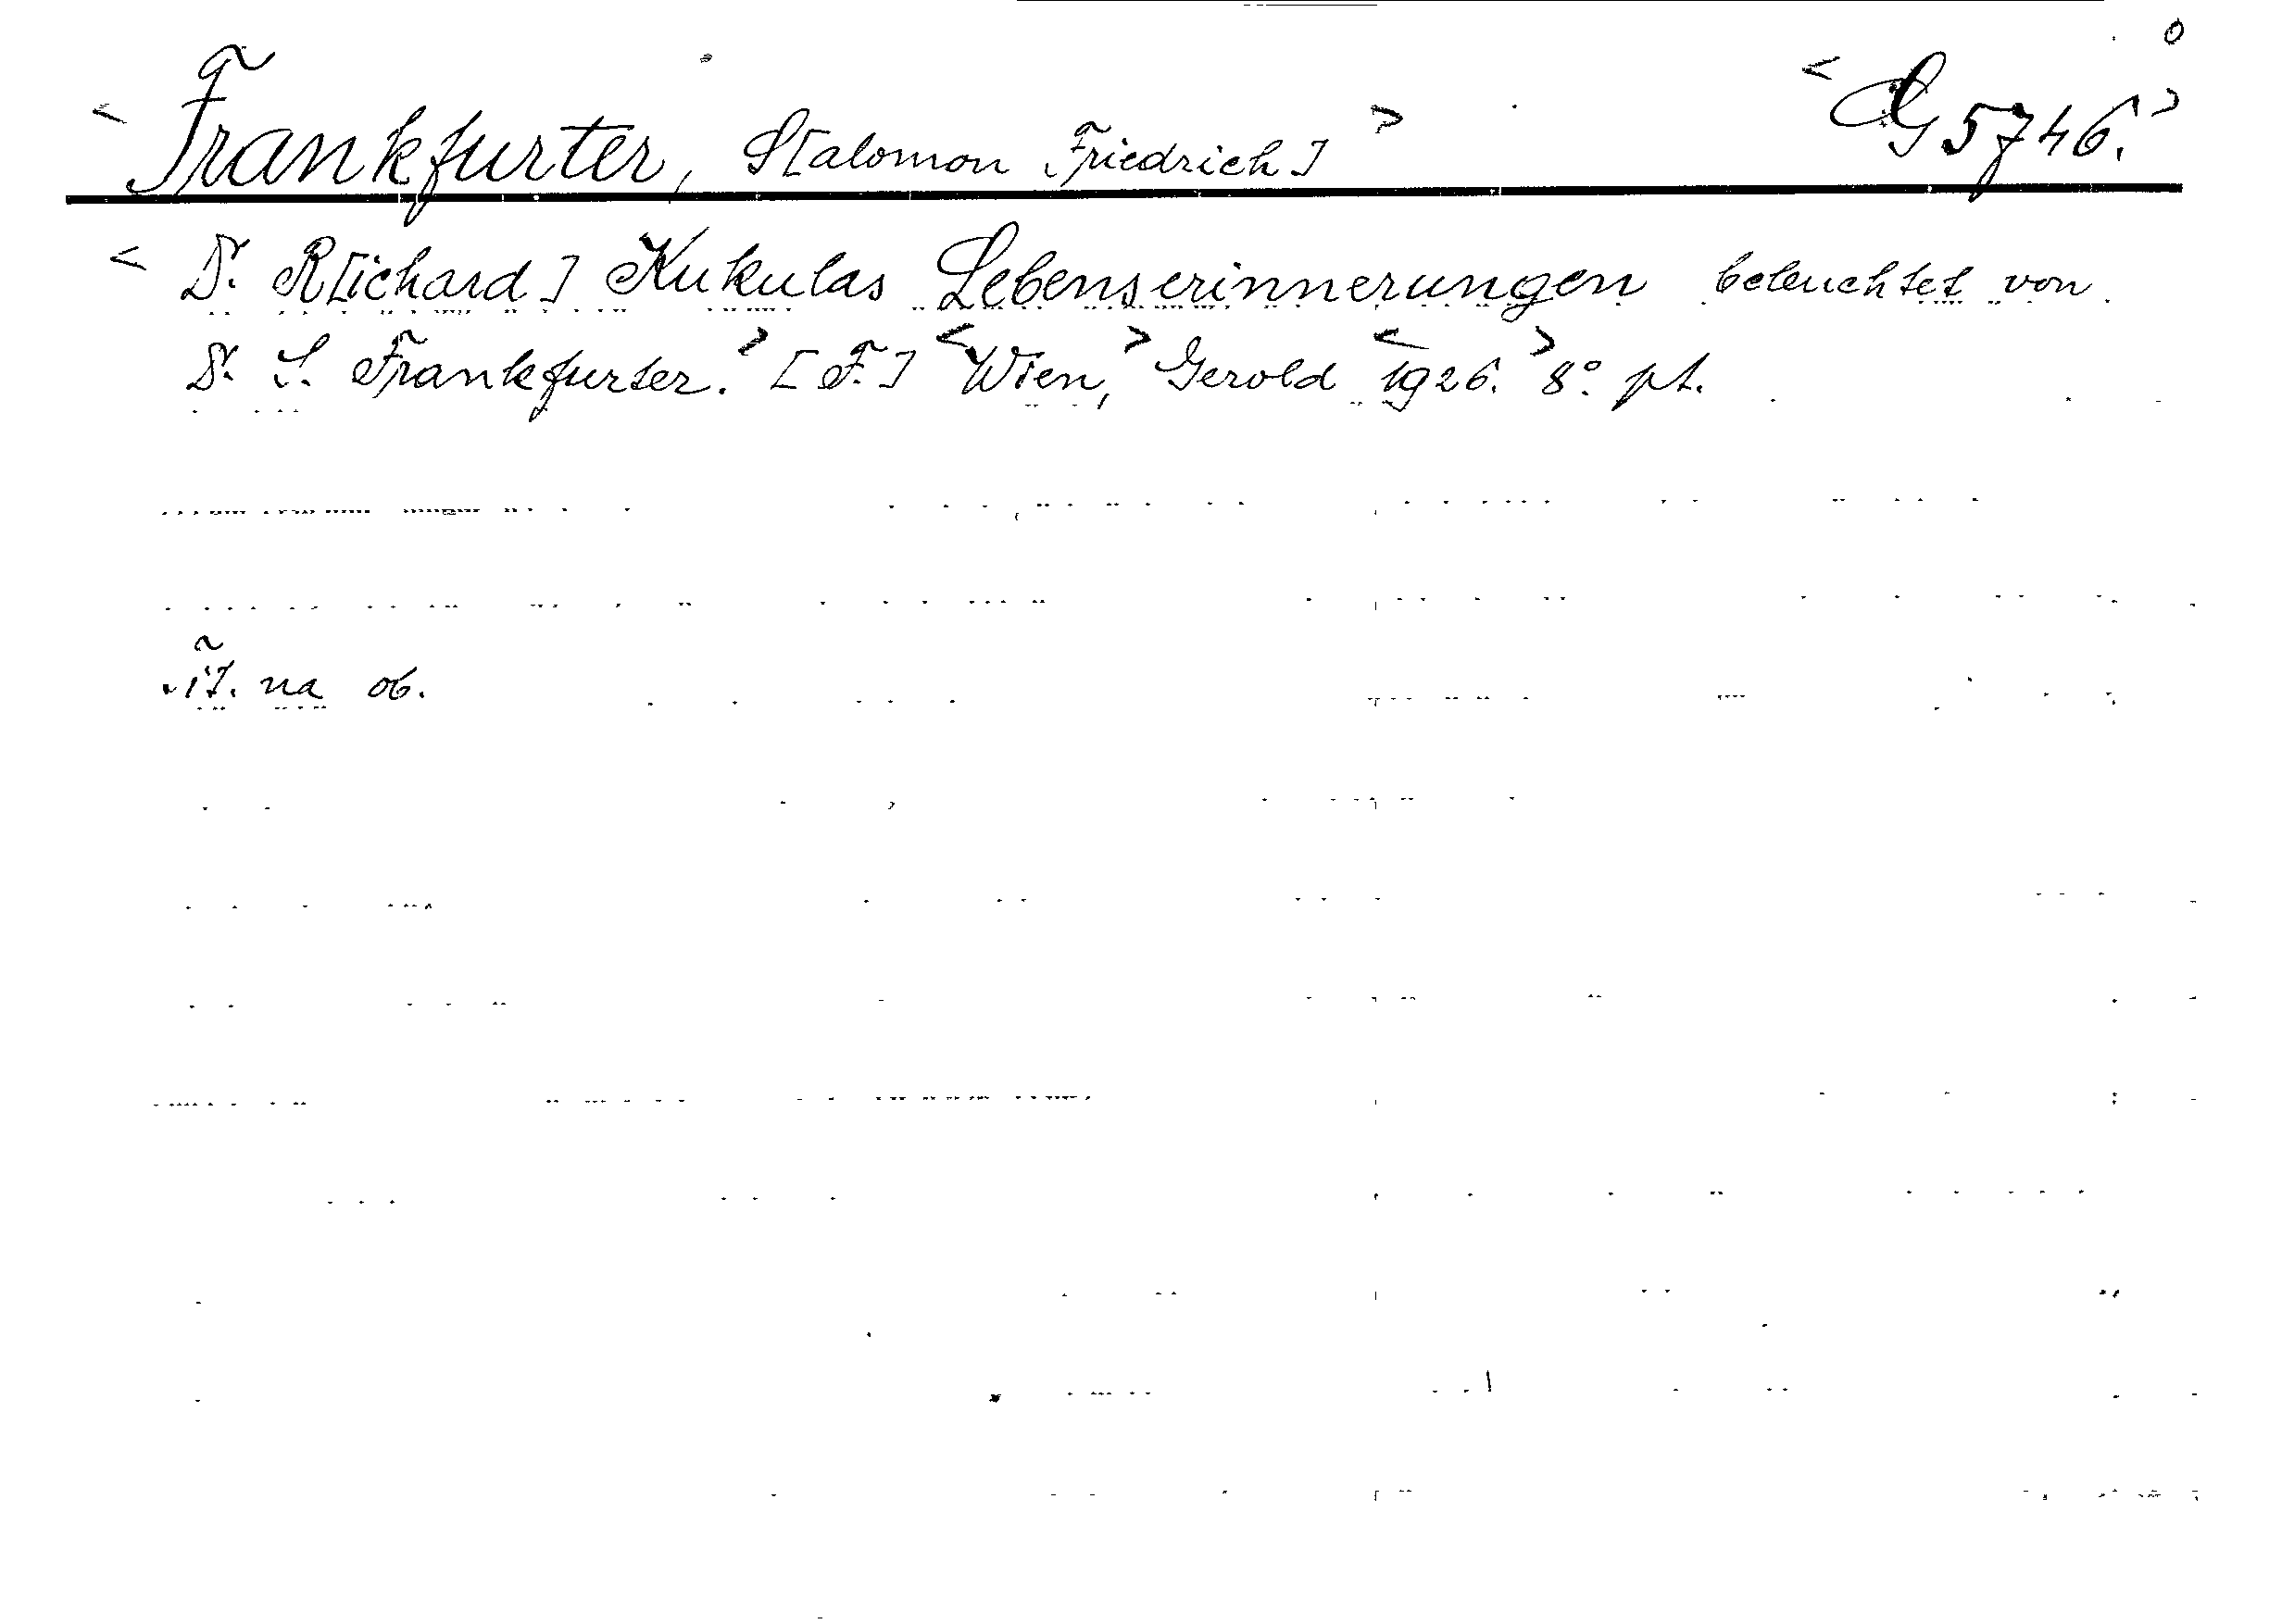 <Frankfurter, S[alomon Friedrich]> <G 5746.>
<Dr. R[ichard] Kukulas Lebenserinnerungen beleuchtet von
Dr. S. Frankfurter.> [F.] <Wien,> Gerold <1926.> 8° pt.
na ob.